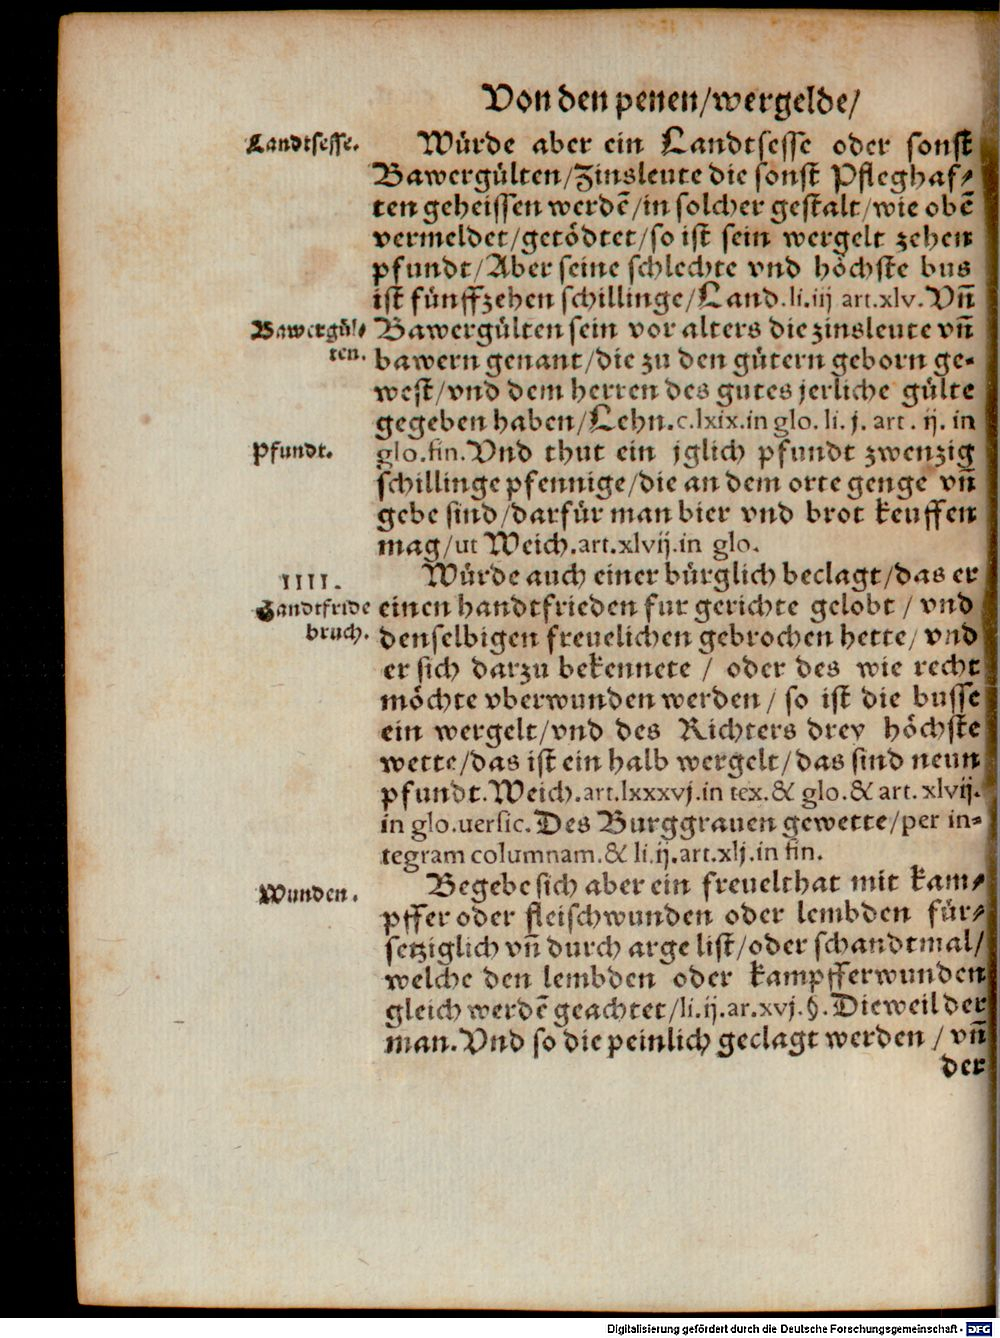 Von den penen/wergelde/
Landtsesse.
Würde aber ein Landtsesse oder sonst
Bawergülten/Zinsleute die sonst Pfleghaf⸗
ten geheissen werdē/in solcher gestalt/wie obē
vermeldet/getödtet/so ist sein wergelt zehen
pfundt/Aber seine schlechte vnd höchste bus
ist fünffzehen schillinge/Land.li.iij art.xlv.Vñ
Bawergül⸗
ten.
Bawergülten sein vor alters die zinsleute vñ
bawern genant/die zu den gütern geborn ge⸗
west/vnd dem herren des gutes jerliche gülte
gegeben haben/Lehn.c.lxix.in glo. li. j. art. ij. in
Pfundt.
glo.fin.Vnd thut ein jglich pfundt zwenzig
schillinge pfennige/die an dem orte genge vñ
gebe sind/darfür man bier vnd brot keuffen
mag/ut Weich.art.xlvij.in glo.
IIII.
Handtfride
bruch.
Würde auch einer bürglich beclagt/das er
einen handtfrieden fur gerichte gelobt / vnd
denselbigen freuelichen gebrochen hette/ vnd
er sich darzu bekennete / oder des wie recht
möchte vberwunden werden / so ist die busse
ein wergelt/vnd des Richters drey höchste
wette/das ist ein halb wergelt/das sind neun
pfundt.Weich.art.lxxxvj.in tex.& glo.& art. xlvij.
in glo.uersic.Des Burggrauen gewette/per in⸗
tegram columnam.& li.ij.art.xlj.in fin.
Wunden.
Begebe sich aber ein freuelthat mit kam⸗
pffer oder fleischwunden oder lembden für⸗
setziglich vñ durch arge list/oder schandtmal/
welche den lembden oder kampfferwunden
gleich werdē geachtet/li.ij.ar.xvj.§.Dieweil der
man.Vnd so die peinlich geclagt werden / vñ
der
Digitalisierung gefördert durch die Deutsche Forschungsgemeinschaft - DFG